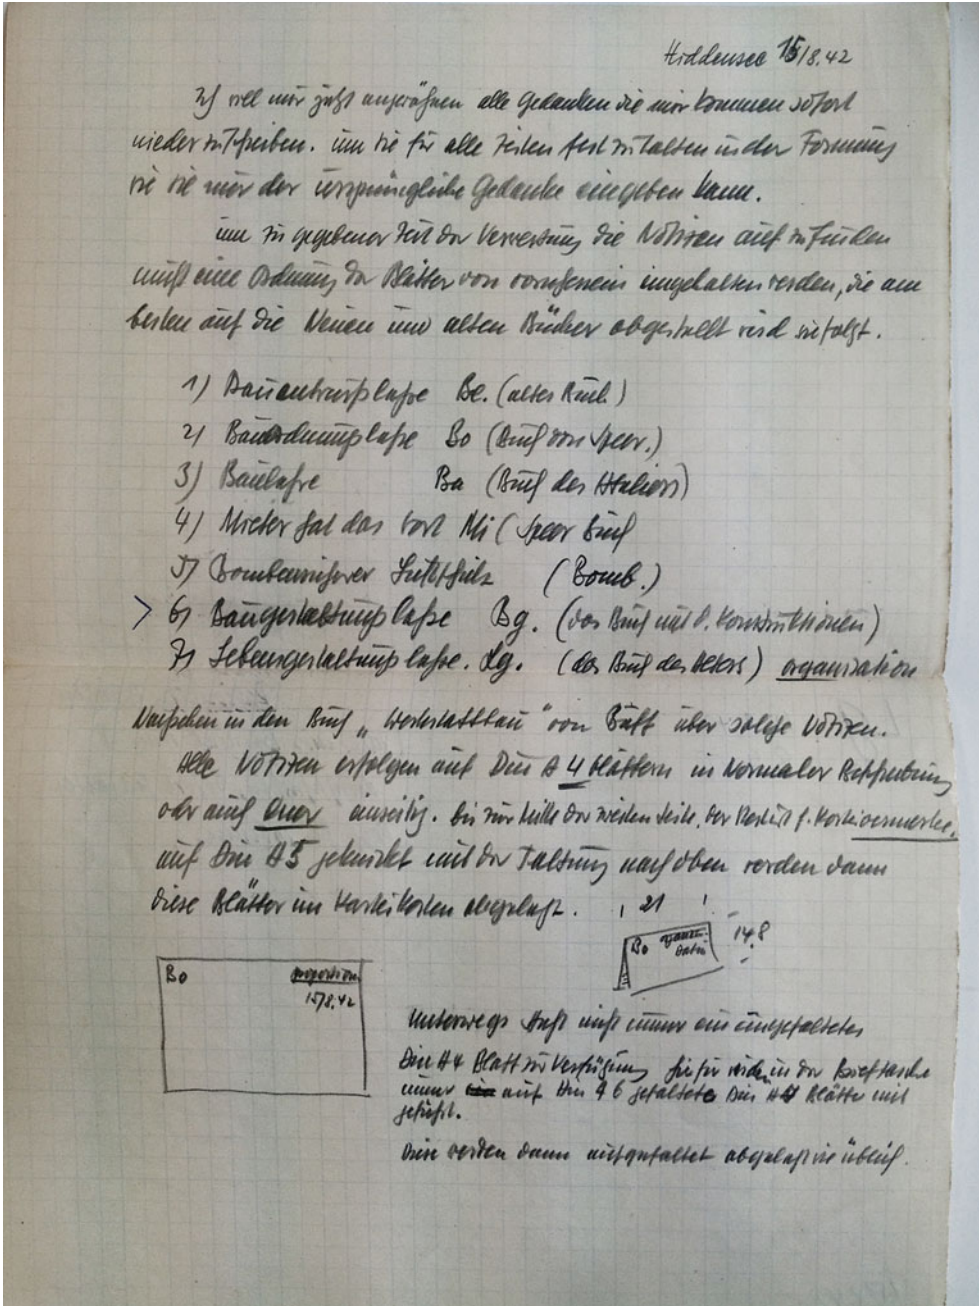 Hiddensee 15/8.42
Ich will mir jetzt angewöhnen alle Gedanken die mir kommen sofort
niederzuschreiben. um sie für alle Zeiten festzuhalten in der Formung
die sie mir der ursprüngliche Gedanke eingeben kann.
um zu gegebener Zeit der Verwertung die Notizen aufzufinden
muß eine Ordnung der Blätter von vornherein eingehalten werden, die am
besten auf die Neuen und alten Bücher abgestellt wird wie folgt.
1) Bauentwurfslehre Be. (altes Buch)
2) Bauordnungslehre Bo (Buch von Speer.)
3) Baulehre Ba (Buch des Ateliers)
4) Mieter hat das Wort Mi (Speer Buch
5) Bombensicherer Luftschutz (Bomb.)
> 6) Baugestaltungslehre Bg. (das Buch mit d. Konstruktionen)
7) Lebensgestaltungslehre. Lg. (das Buch des Alters) organisation
Nachsehen in dem Buch „Werkstattbau" von über solche Notizen.
Alle Notizen erfolgen auf Din A 4 blättern in Normaler Beschreibung
oder auch quer einseitig. bis zur Mitte der zweiten Seite, der Rest ist f. Karteivermerke.
auf Din A5 geknickt mit der Faltung nach oben werden dann
diese Blätter im Karteikasten abgelegt.
21
14.8
Bo
Datum
Bo
proportion
15/8.42
Unterwegs steht nicht immer ein eingefaltetes
Din A4 Blatt zur Verfügung hierfür werden in der Brieftasche
immer auf Din A6 gefaltete Din A4 Blätter mit
geführt.
Diese werden dann aufgefaltet abgelegt wie üblich.